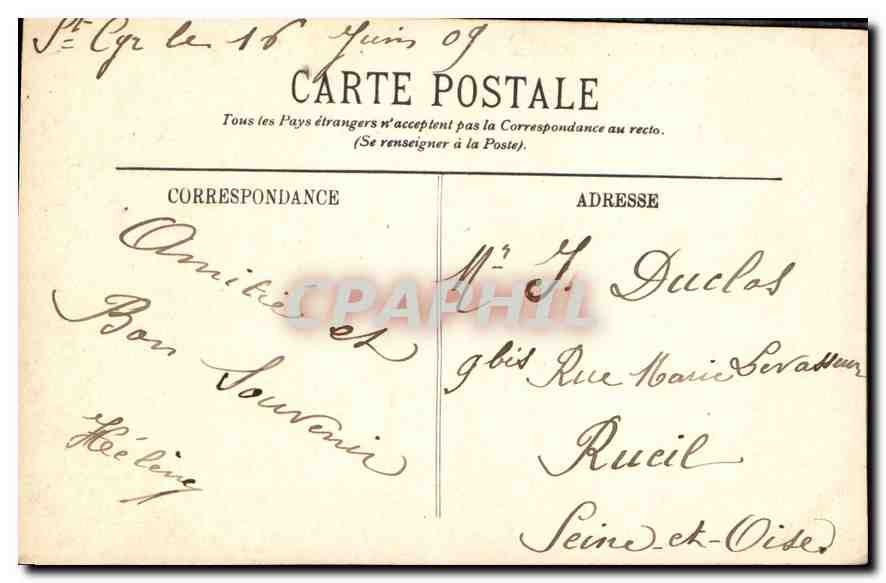 St Cyr le 16 Juin 09
CARTE POSTALE
Tous les Pays étrangers n'acceptent pas la Correspondance au recto.
(Se renseigner à la Poste).
CORRESPONDANCE
Amitié et
Bon Souvenir
Hélène
ADRESSE
Mr J. Duclos
9bis Rue Marie Levasseur
Rueil
Seine-et-Oise.
CPAPHIL